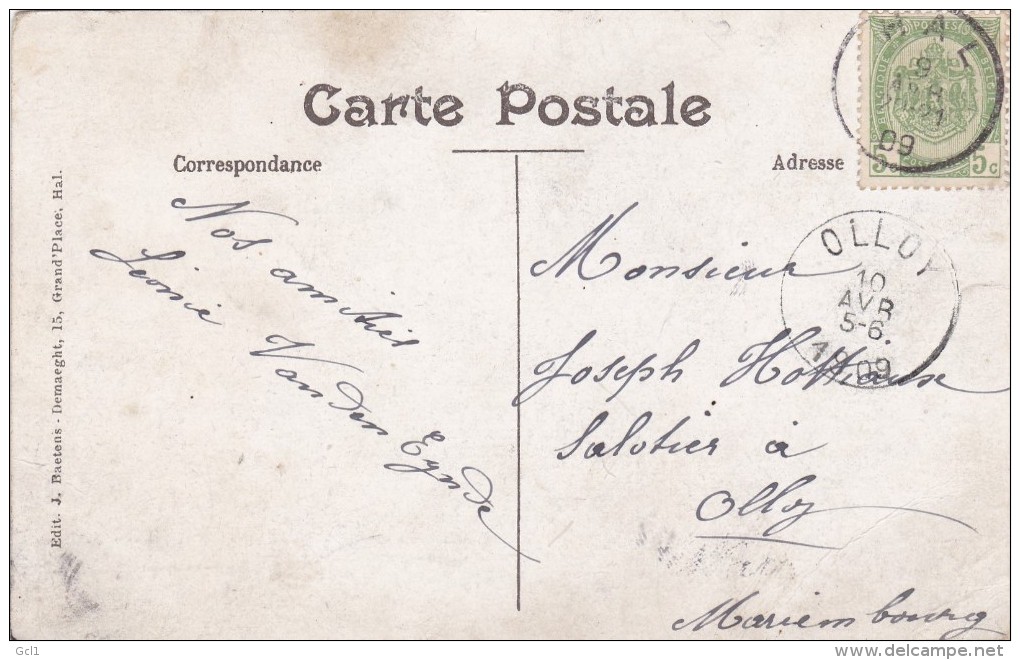 Carte Postale
Correspondance
Adresse
Nos amitiés
Léonie Vanden Eynde
Monsieur
Joseph Hottiaux
Sabotier à
Olloy
Mariembourg
Edit. J. Baetens - Demaeght, 15, Grand'Place, Hal.
HAL
9
09
5c 5c
OLLOY
10
AVR
5-6.
1909
Gcl1
delcampe.net